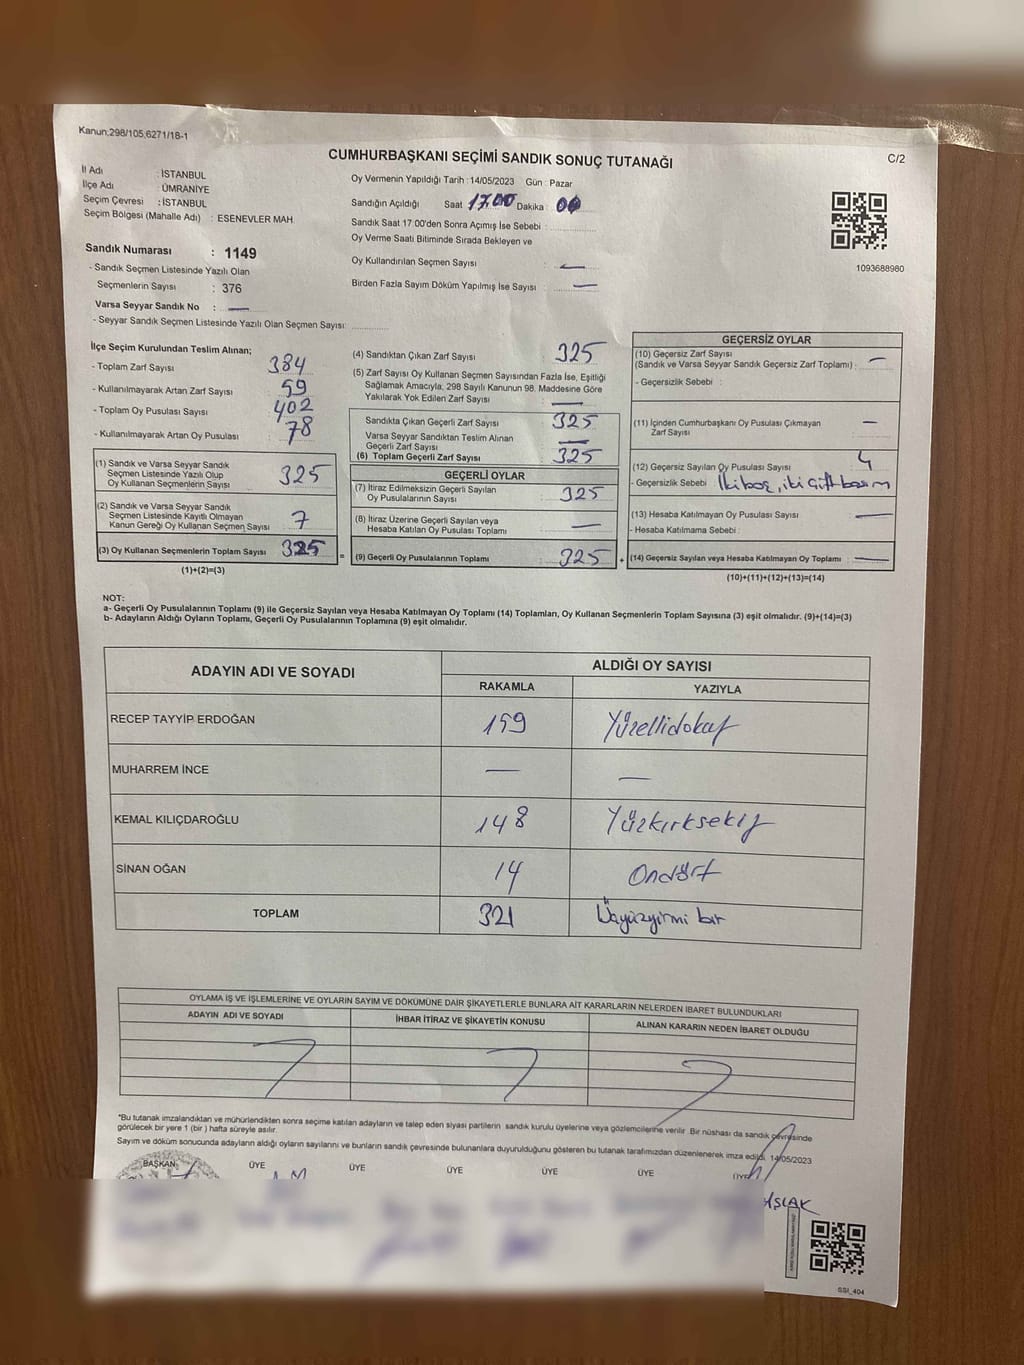 Kanun;298/105;6271/18-1
CUMHURBAŞKANI SEÇİMİ SANDIK SONUÇ TUTANAĞI
C/2
İl Adı : İSTANBUL
İlçe Adı : ÜMRANİYE
Seçim Çevresi : İSTANBUL
Seçim Bölgesi (Mahalle Adı) : ESENEVLER MAH.
Sandık Numarası : 1149
- Sandık Seçmen Listesinde Yazılı Olan
Seçmenlerin Sayısı : 376
Varsa Seyyar Sandık No : —
- Seyyar Sandık Seçmen Listesinde Yazılı Olan Seçmen Sayısı:
Oy Vermenin Yapıldığı Tarih : 14/05/2023 Gün : Pazar
Sandığın Açıldığı Saat 17.00 Dakika : 00
Sandık Saat 17:00'den Sonra Açımış İse Sebebi :
Oy Verme Saati Bitiminde Sırada Bekleyen ve
Oy Kullandırılan Seçmen Sayısı : —
Birden Fazla Sayım Döküm Yapılmış İse Sayısı : —
1093688980
İlçe Seçim Kurulundan Teslim Alınan;
- Toplam Zarf Sayısı : 384
- Kullanılmayarak Artan Zarf Sayısı : 59
- Toplam Oy Pusulası Sayısı : 402
- Kullanılmayarak Artan Oy Pusulası : 78
(1) Sandık ve Varsa Seyyar Sandık
Seçmen Listesinde Yazılı Olup
Oy Kullanan Seçmenlerin Sayısı : 325
(2) Sandık ve Varsa Seyyar Sandık
Seçmen Listesinde Kayıtlı Olmayan
Kanun Gereği Oy Kullanan Seçmen Sayısı : 7
(3) Oy Kullanan Seçmenlerin Toplam Sayısı 325 =
(1)+(2)=(3)
(4) Sandıktan Çıkan Zarf Sayısı : 325
(5) Zarf Sayısı Oy Kullanan Seçmen Sayısından Fazla İse, Eşitliği
Sağlamak Amacıyla, 298 Sayılı Kanunun 98. Maddesine Göre
Yakılarak Yok Edilen Zarf Sayısı : —
Sandıkta Çıkan Geçerli Zarf Sayısı : 325
Varsa Seyyar Sandıktan Teslim Alınan
Geçerli Zarf Sayısı : —
(6) Toplam Geçerli Zarf Sayısı : 325
GEÇERLİ OYLAR
(7) İtiraz Edilmeksizin Geçerli Sayılan
Oy Pusulalarının Sayısı : 325
(8) İtiraz Üzerine Geçerli Sayılan veya
Hesaba Katılan Oy Pusulası Toplamı : —
(9) Geçerli Oy Pusulalarının Toplamı : 325 +
GEÇERSİZ OYLAR
(10) Geçersiz Zarf Sayısı
(Sandık ve Varsa Seyyar Sandık Geçersiz Zarf Toplamı) : —
- Geçersizlik Sebebi :
(11) İçinden Cumhurbaşkanı Oy Pusulası Çıkmayan
Zarf Sayısı : —
(12) Geçersiz Sayılan Oy Pusulası Sayısı : 4
- Geçersizlik Sebebi : İki boş, iki çift basım
(13) Hesaba Katılmayan Oy Pusulası Sayısı : —
- Hesaba Katılmama Sebebi :
(14) Geçersiz Sayılan veya Hesaba Katılmayan Oy Toplamı : —
(10)+(11)+(12)+(13)=(14)
NOT:
a- Geçerli Oy Pusulalarının Toplamı (9) ile Geçersiz Sayılan veya Hesaba Katılmayan Oy Toplamı (14) Toplamları, Oy Kullanan Seçmenlerin Toplam Sayısına (3) eşit olmalıdır. (9)+(14)=(3)
b- Adayların Aldığı Oyların Toplamı, Geçerli Oy Pusulalarının Toplamına (9) eşit olmalıdır.
ADAYIN ADI VE SOYADI ALDIĞI OY SAYISI
RAKAMLA YAZIYLA
RECEP TAYYİP ERDOĞAN 159 Yüzellidokuz
MUHARREM İNCE — —
KEMAL KILIÇDAROĞLU 148 Yüzkırksekiz
SİNAN OĞAN 14 Ondört
TOPLAM 321 Üçyüzyirmi bir
OYLAMA İŞ VE İŞLEMLERİNE VE OYLARIN SAYIM VE DÖKÜMÜNE DAİR ŞİKAYETLERLE BUNLARA AİT KARARLARIN NELERDEN İBARET BULUNDUKLARI
ADAYIN ADI VE SOYADI İHBAR İTİRAZ VE ŞİKAYETİN KONUSU ALINAN KARARIN NEDEN İBARET OLDUĞU
*Bu tutanak imzalandıktan ve mühürlendikten sonra seçime katılan adayların ve talep eden siyasi partilerin sandık kurulu üyelerine veya gözlemcilerine verilir. Bir nüshası da sandık çevresinde
görülecek bir yere 1 (bir) hafta süreyle asılır.
Sayım ve döküm sonucunda adayların aldığı oyların sayılarını ve bunların sandık çevresinde bulunanlara duyurulduğunu gösteren bu tutanak tarafımızdan düzenlenerek imza edildi. 14/05/2023
BAŞKAN ÜYE ÜYE ÜYE ÜYE ÜYE ÜYE
SSİ_404